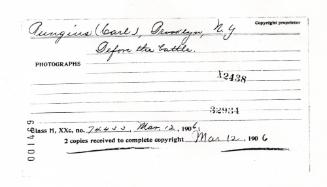 Copyright proprietor
Pungius (Carl), Brooklyn, N.Y
Before the battle.
PHOTOGRAPHS
X2438
32934
Class H, XXc, no. 74433, Mar. 12, 1906,
2 copies received to complete copyright Mar 12, 1906
001469